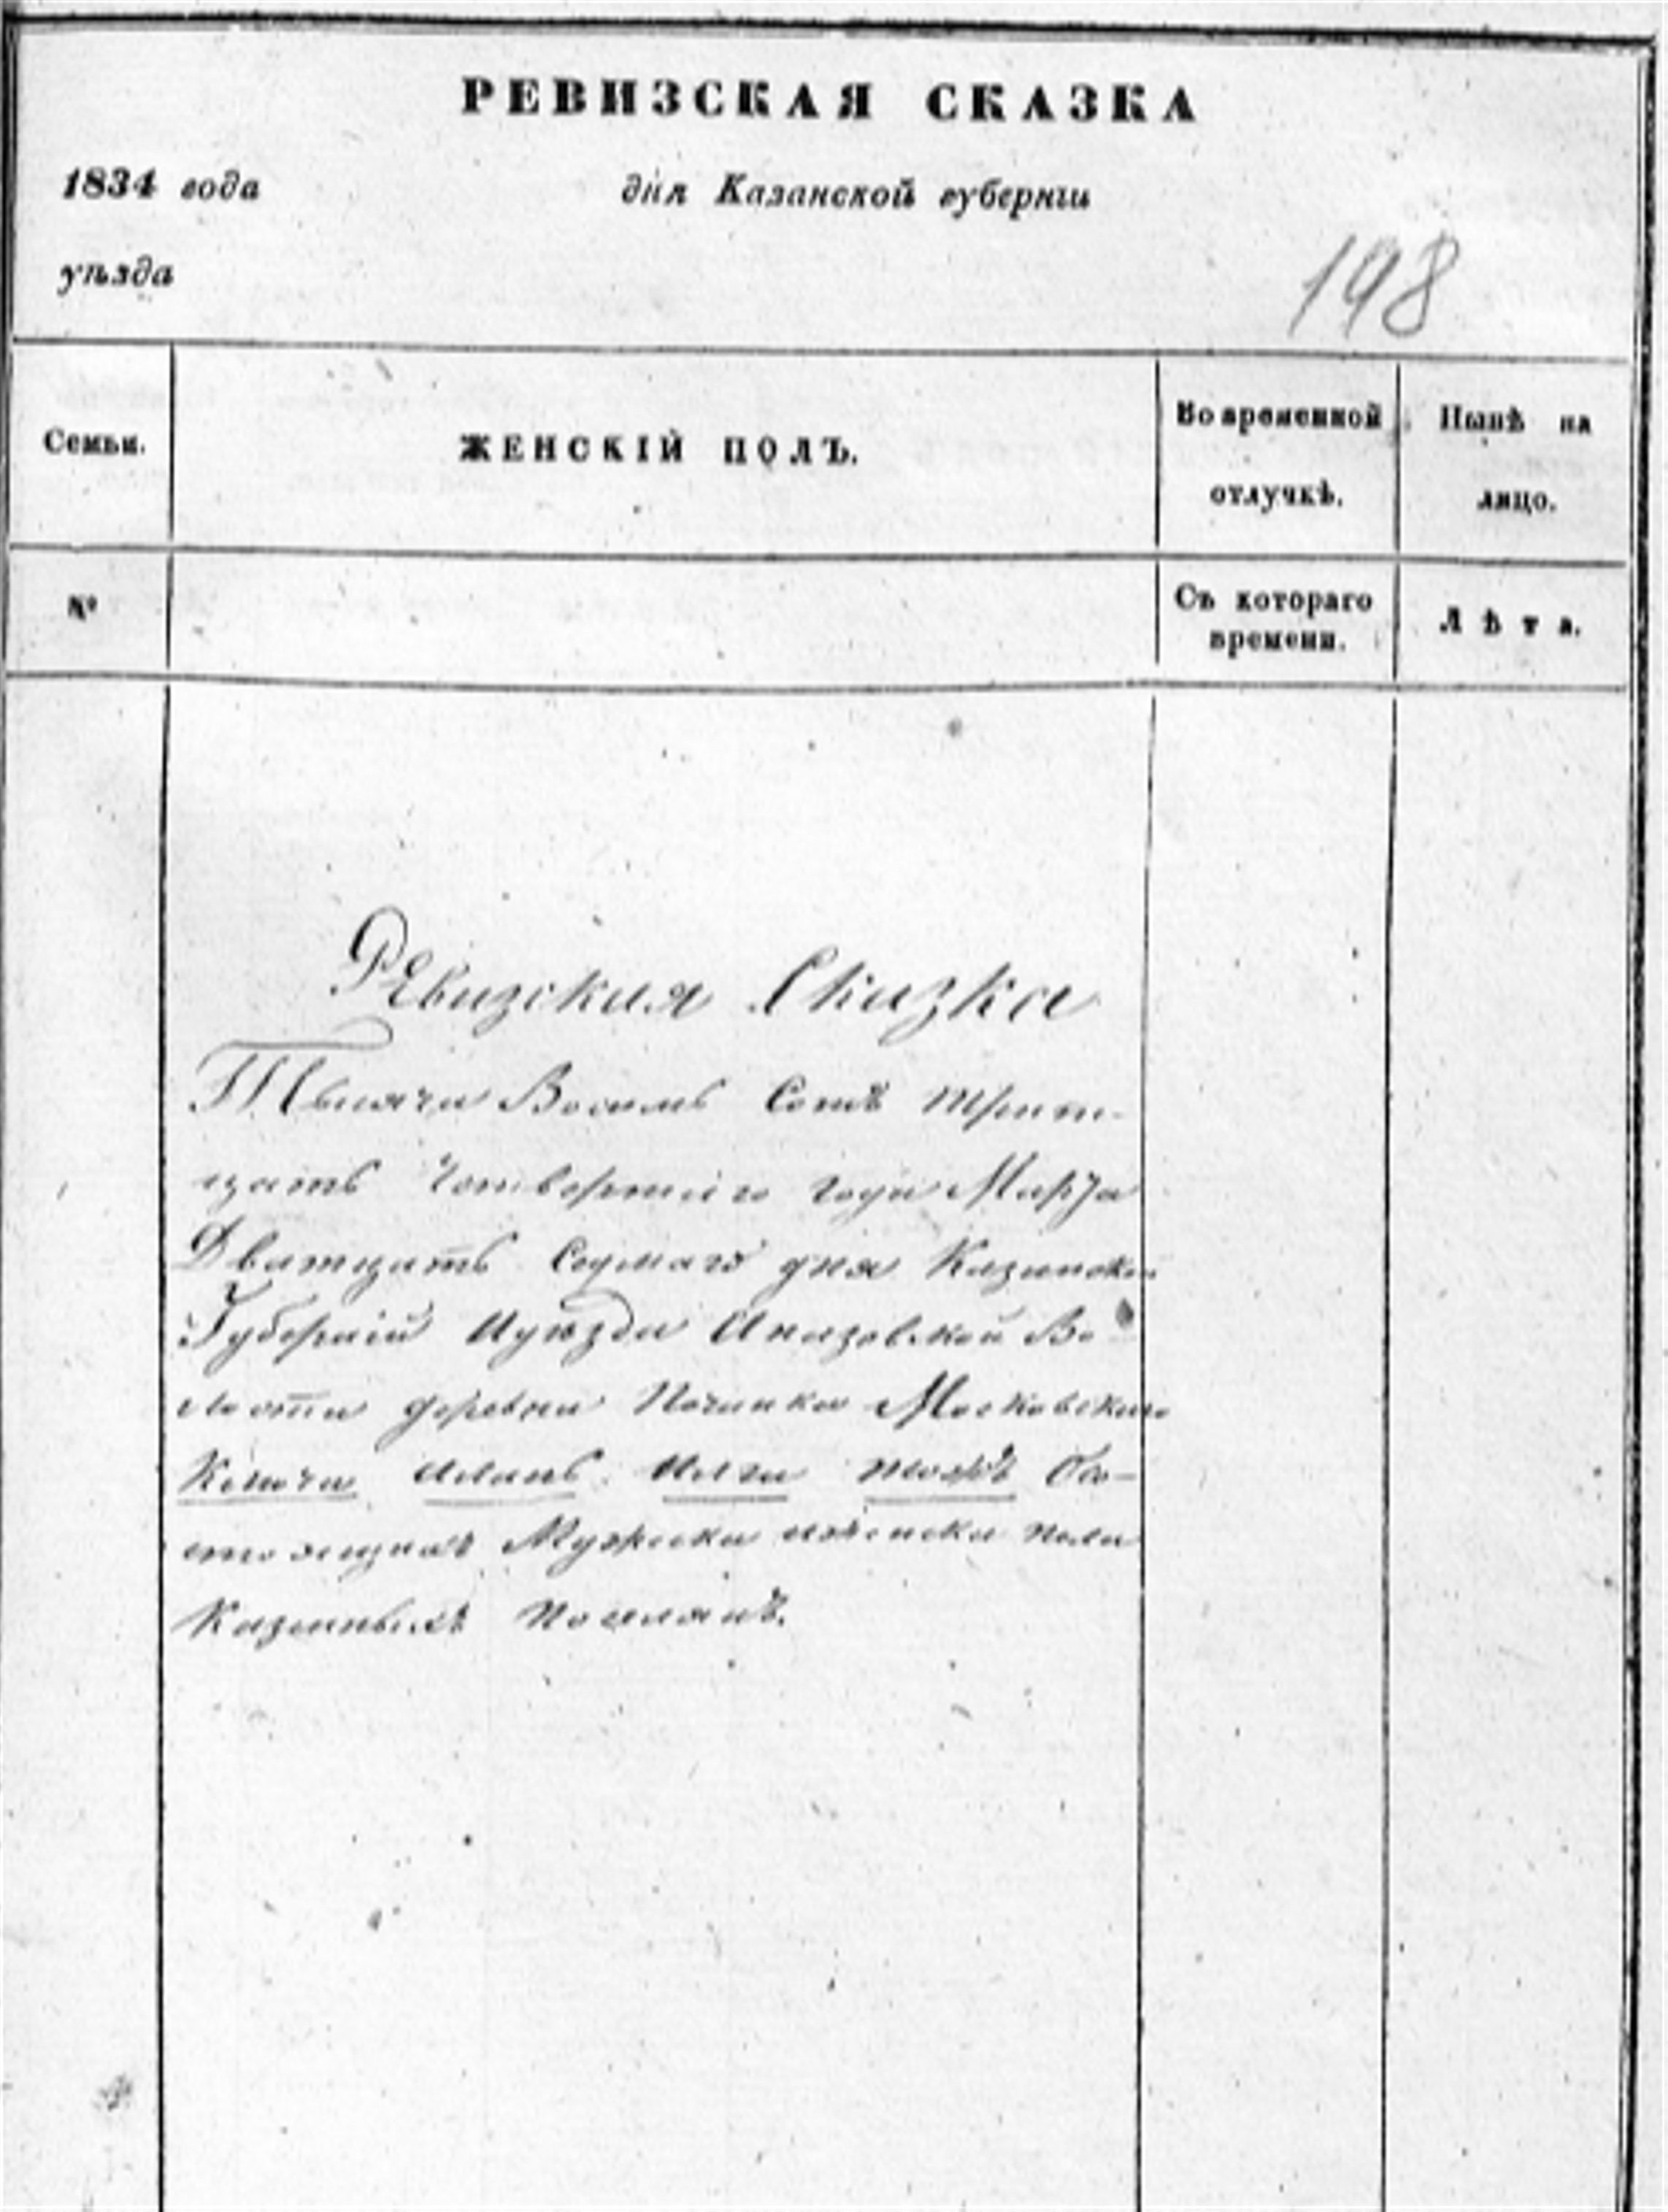 РЕВИЗСКАЯ СКАЗКА
1834 года дня Казанской губерніи
уѣзда
198
Семьи. ЖЕНСКІЙ ПОЛЪ. Во временной отлучкѣ. Нынѣ на лицо.
№ Съ котораго времени. Лѣта.
Ревизская Сказка
Тысяча Восемь Сотъ трит-
цать Четвертаго года Марта
Дватцать Седмаго дня Казанской
Губерній Иуѣзда Во
лости деревни Починка Московскаго
Ключа Иланъ тожъ Со-
стоящихъ Мужска иженска пола
Казенныхъ Поселянъ.